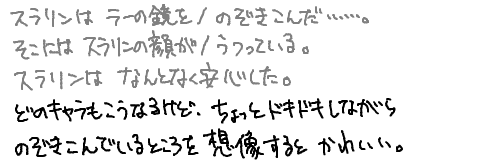 スラリンは ラーの鏡を/のぞきこんだ……。
そこには スラリンの顔が/うつっている。
スラリンは なんとなく安心した。
どのキャラもこうなるけど、ちょっとドキドキしながら
のぞきこんでいるところを想像すると かわいい。